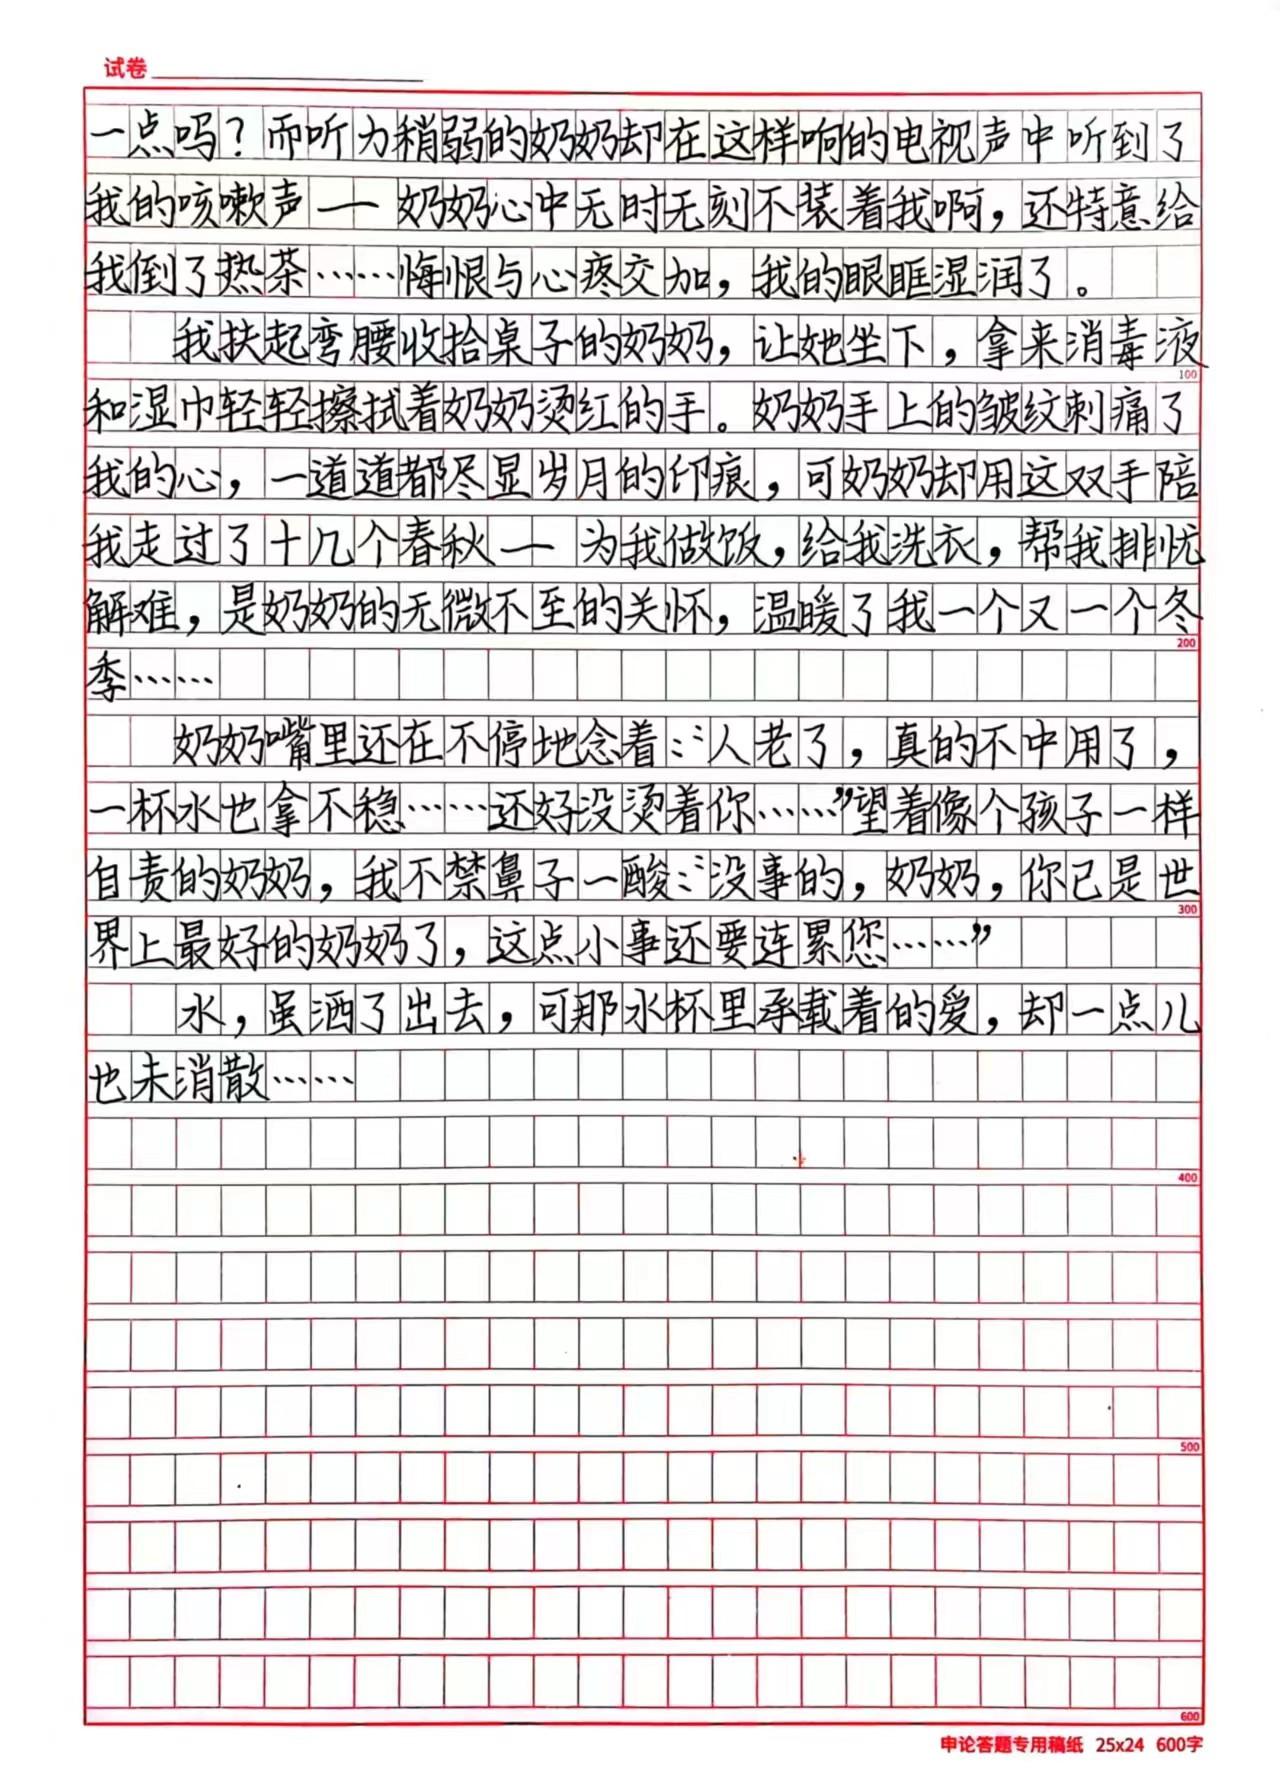 试卷
一点吗？而听力稍弱的奶奶却在这样响的电视声中听到了
我的咳嗽声——奶奶心中无时无刻不装着我啊，还特意给
我倒了热茶……悔恨与心疼交加，我的眼眶湿润了。
我扶起弯腰收拾桌子的奶奶，让她坐下，拿来消毒液
100
和湿巾轻轻擦拭着奶奶烫红的手。奶奶手上的皱纹刺痛了
我的心，一道道都尽显岁月的印痕，可奶奶却用这双手陪
我走过了十几个春秋——为我做饭，给我洗衣，帮我排忧
解难，是奶奶的无微不至的关怀，温暖了我一个又一个冬
200
季……
奶奶嘴里还在不停地念着：“人老了，真的不中用了，
一杯水也拿不稳……还好没烫着你……”望着像个孩子一样
自责的奶奶，我不禁鼻子一酸：“没事的，奶奶，你已是世
300
界上最好的奶奶了，这点小事还要连累您……”
水，虽洒了出去，可那水杯里承载着的爱，却一点儿
也未消散……
400
500
600
申论答题专用稿纸 25x24 600字